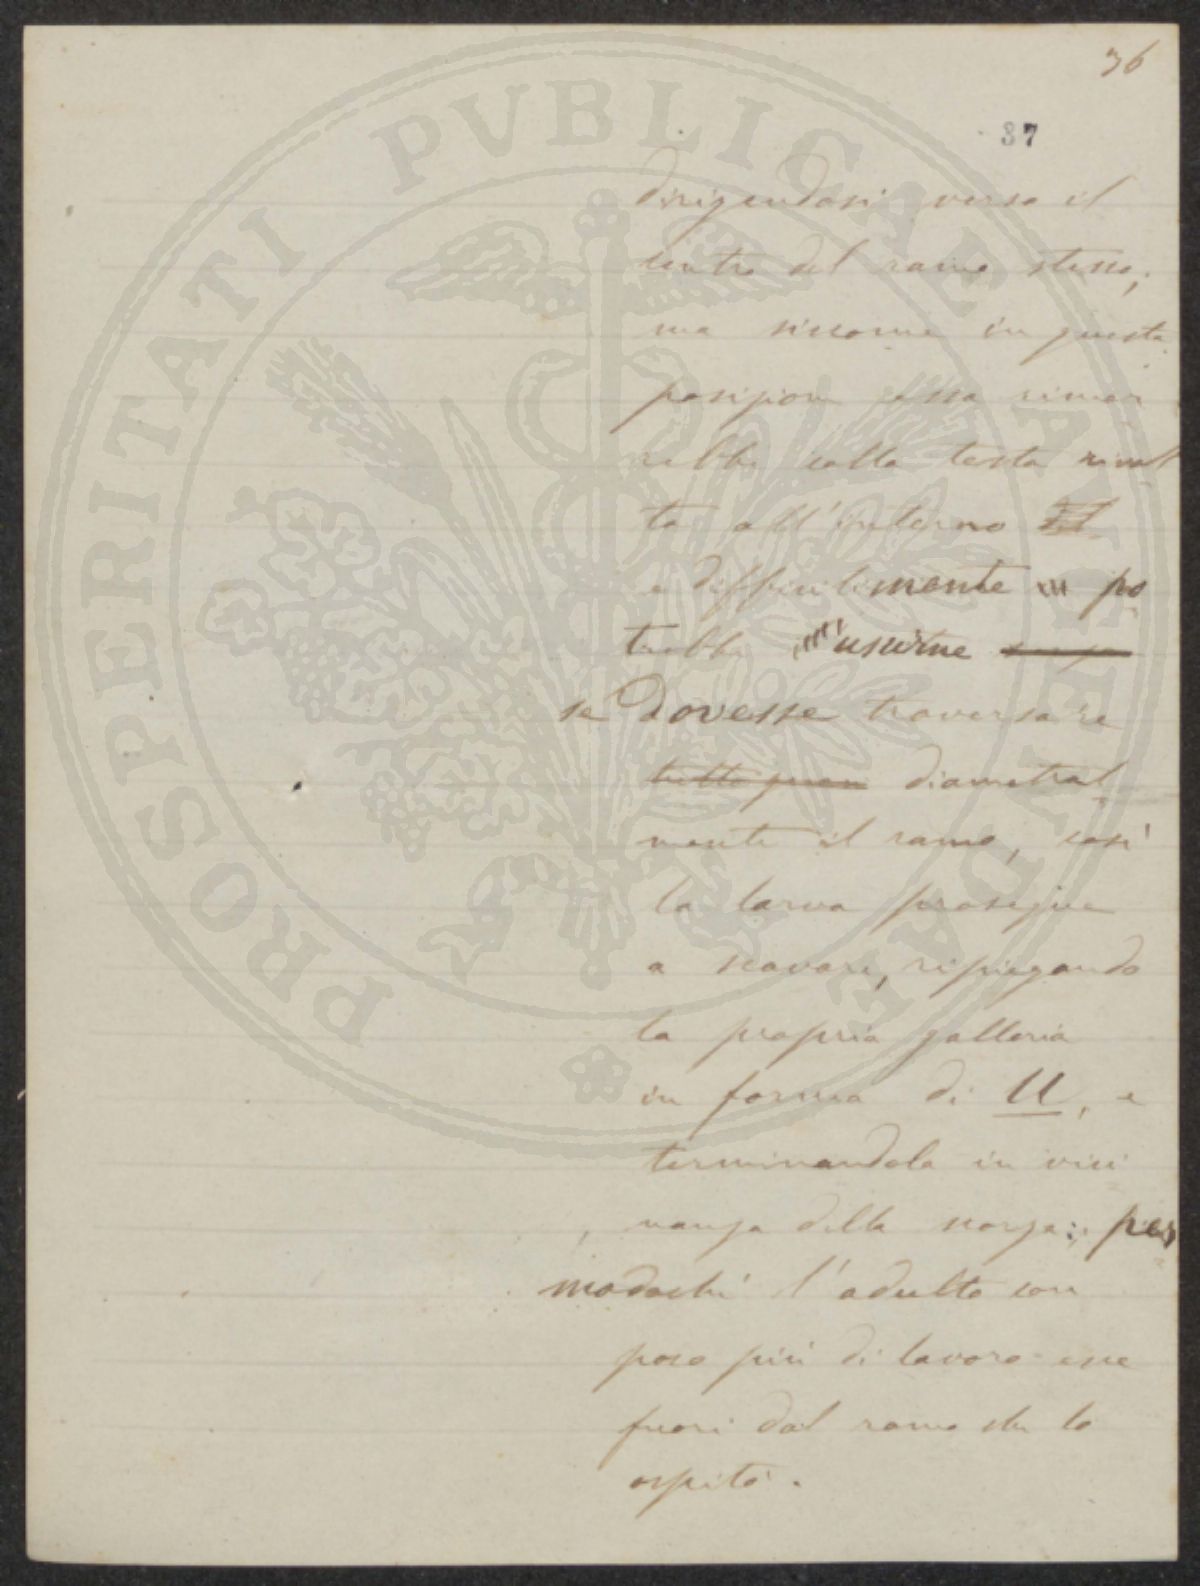 36
37
dirigendosi verso il
centro del ramo stesso,
ma siccome in questa
posizione essa rimar
rebbe colla testa rivol
ta all'interno
e difficilmente po
trebbe uscirne
se dovesse traversare
diametral
mente il ramo, così
la larva prosegue
a scavare, ripiegando
la propria galleria
in forma di U, e
terminandola in vici
nanza della scorza; per
modochè l'adulto con
poco più di lavoro esce
fuori dal ramo che lo
ospitò.
PROSPERITATI PVBLICAE AVGENDAE